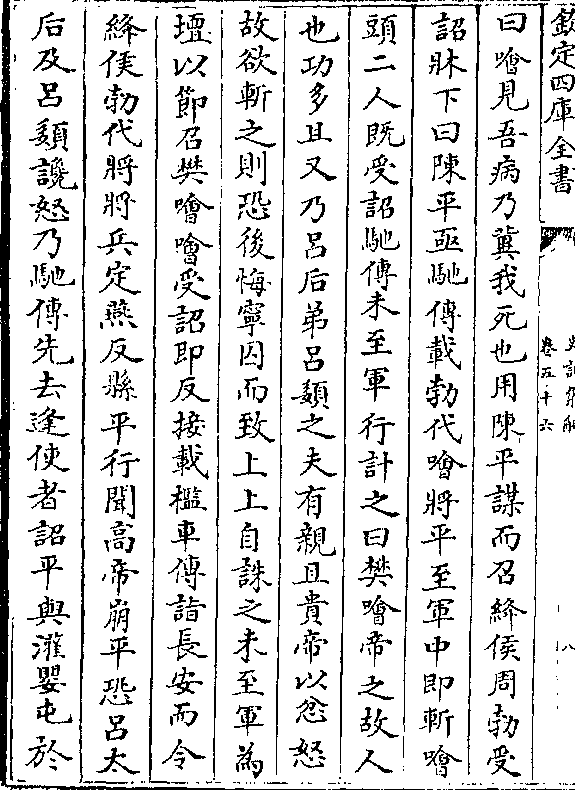 欽定四庫全書
卷五十六
八
曰噲見吾病乃冀我死也用陳平謀而召絳侯周勃受
詔牀下曰陳平亟馳傳載勃代噲將平至軍中即斬噲
頭二人既受詔馳傳未至軍行計之曰樊噲帝之故人
也功多且又乃呂后弟呂嬃之夫有親且貴帝以忿怒
故欲斬之則恐後悔寧囚而致上上自誅之未至軍為
壇以節召樊噲噲受詔即反接載檻車傳詣長安而令
絳侯勃代將將兵定燕反縣平行聞高帝崩平恐呂太
后及呂嬃讒怒乃馳傳先去逢使者詔平與灌嬰屯於